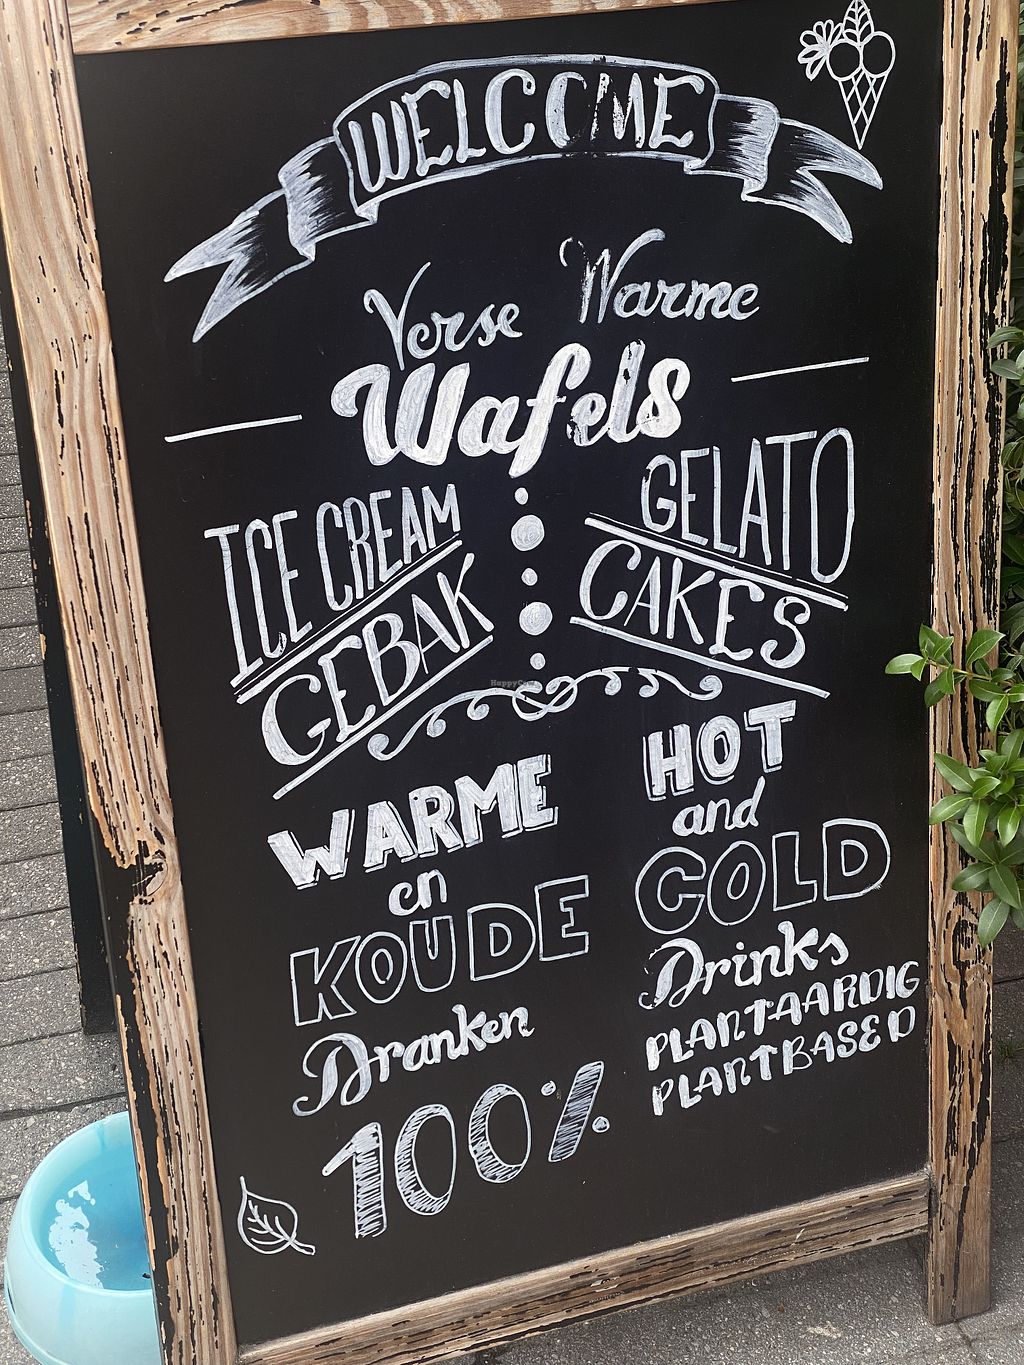 WELCOME
Verse Warme
Wafels
ICE CREAM
GEBAK
GELATO
CAKES
HappyCow
WARME
en
KOUDE
Dranken
HOT
and
COLD
Drinks
100%
PLANTAARDIG
PLANTBASED